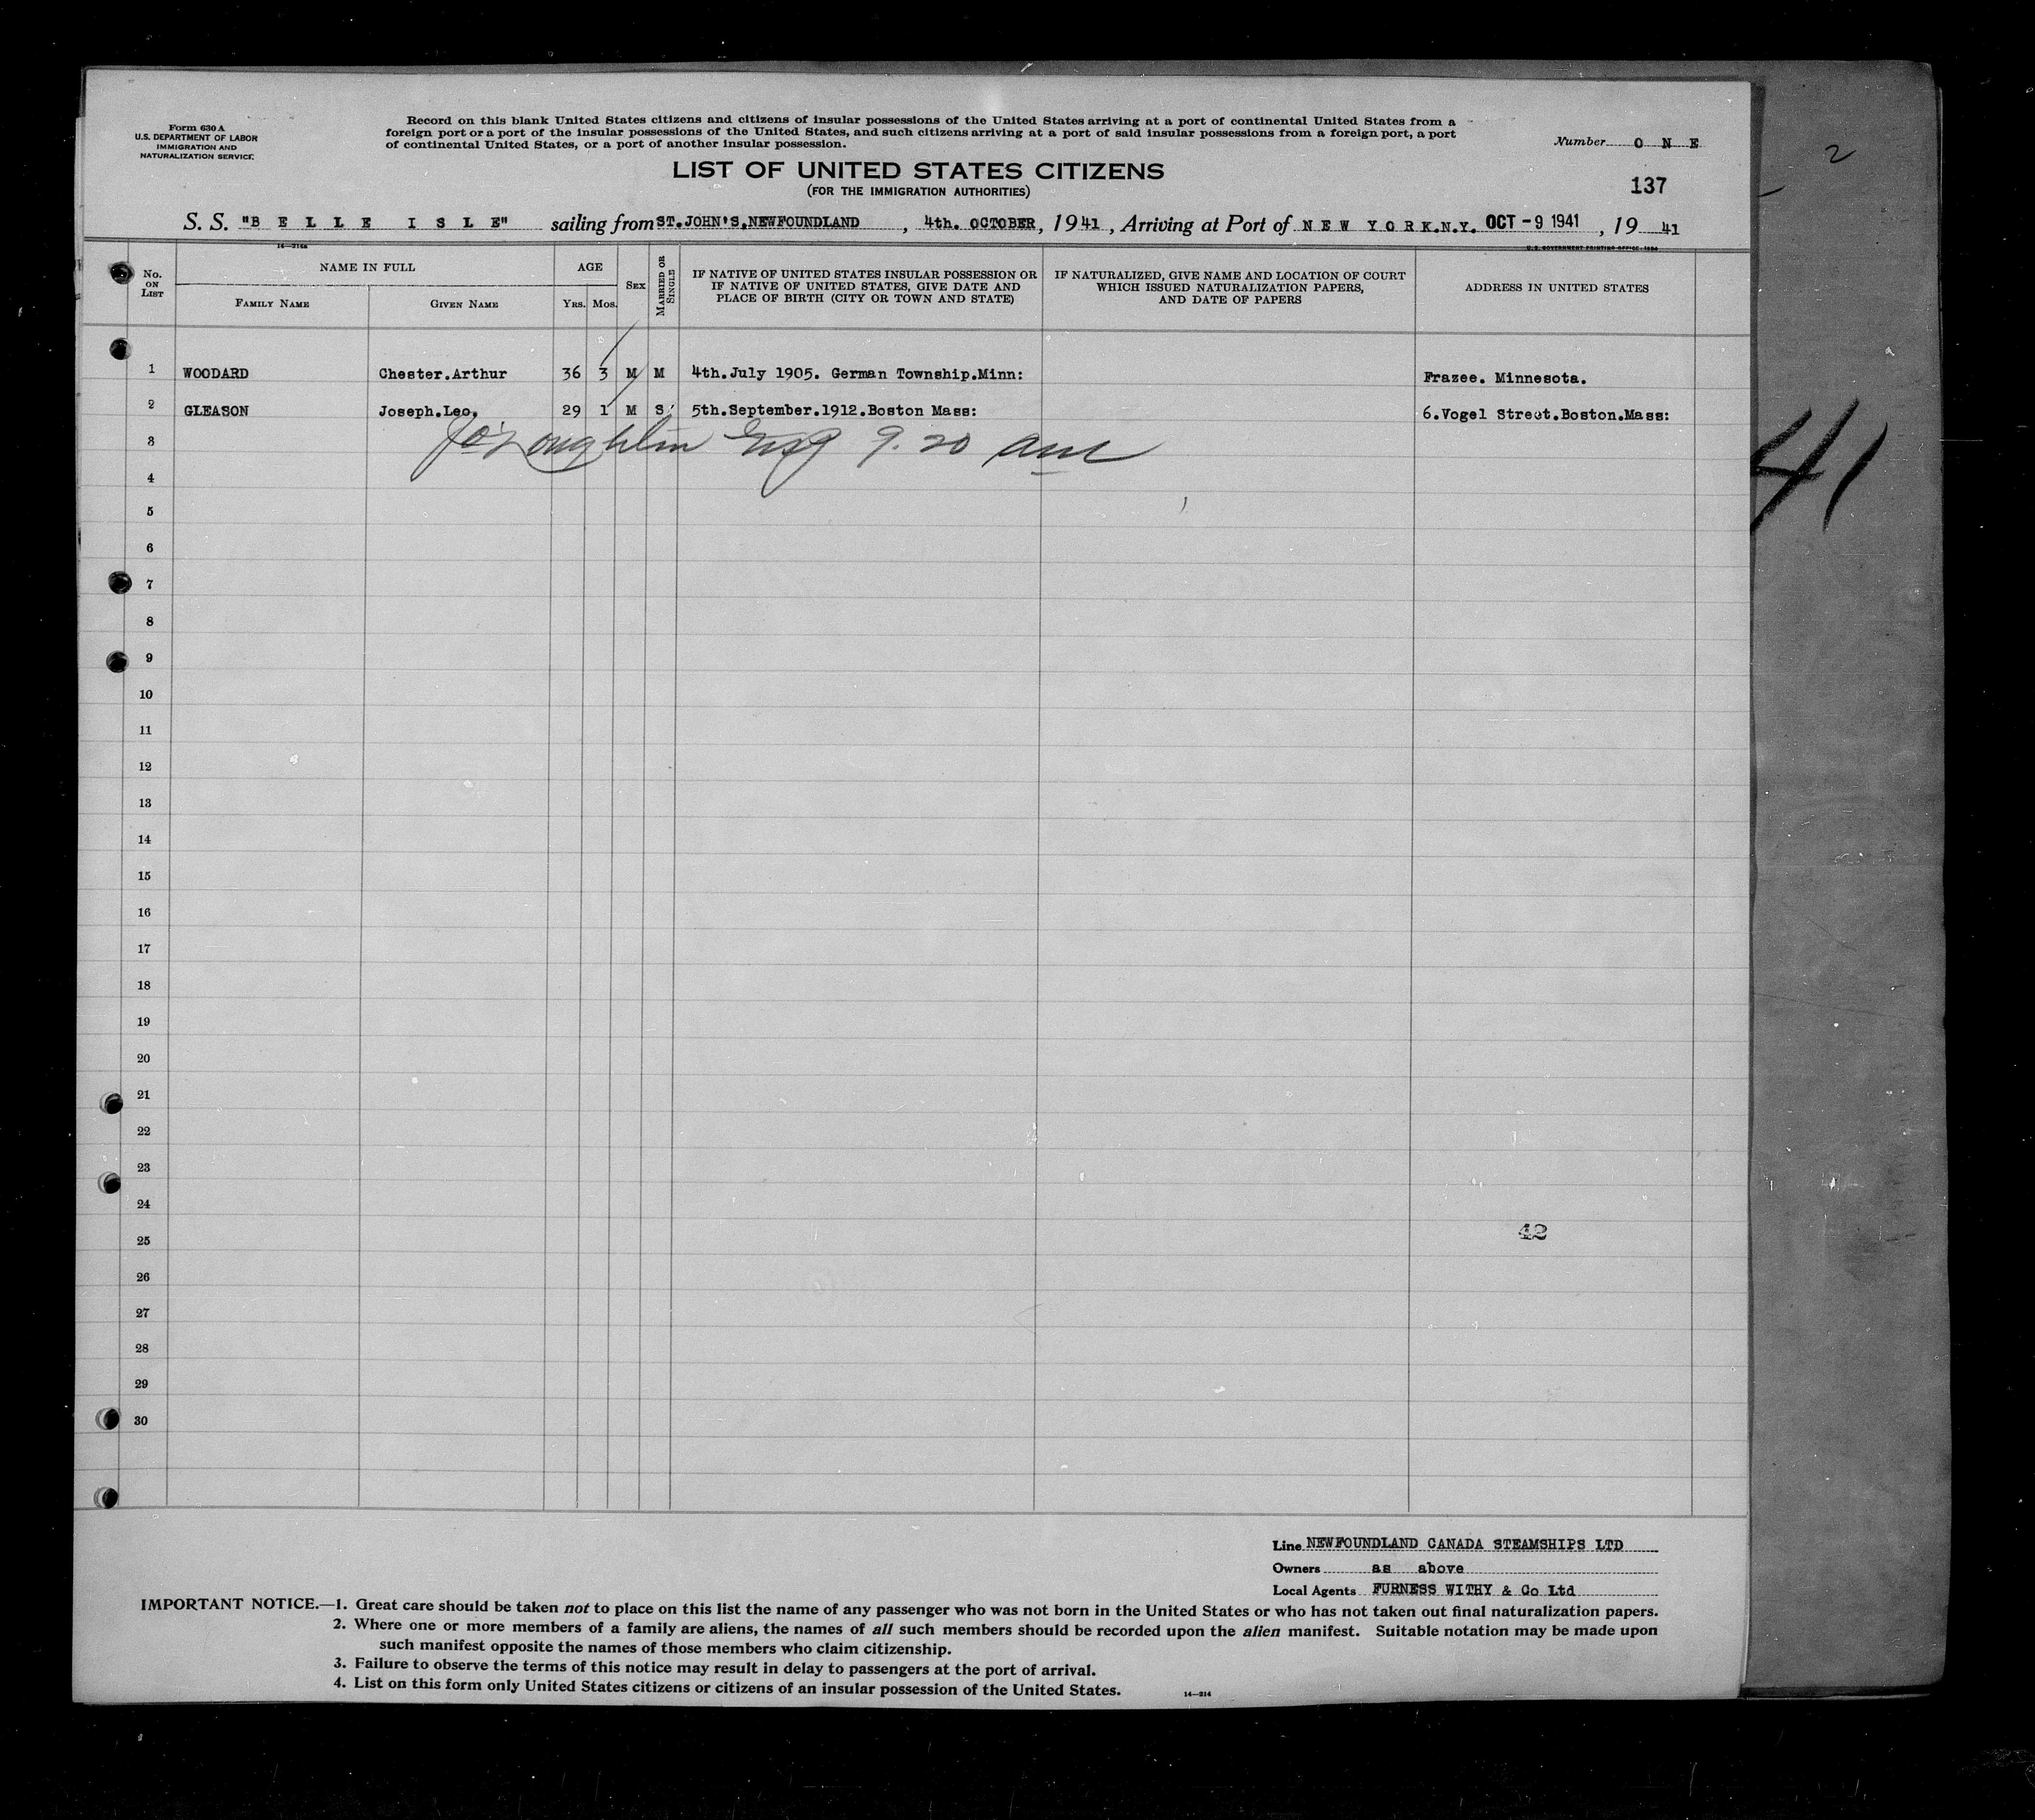 Form 630 A
U.S. DEPARTMENT OF LABOR
IMMIGRATION AND
NATURALIZATION SERVICE
Record on this blank United States citizens and citizens of insular possessions of the United States arriving at a port of continental United States from a
foreign port or a port of the insular possessions of the United States, and such citizens arriving at a port of said insular possessions from a foreign port, a port
of continental United States, or a port of another insular possession.
Number O N E
2
LIST OF UNITED STATES CITIZENS
(FOR THE IMMIGRATION AUTHORITIES)
137
S. S. "B E L L E I S L E" sailing from ST.JOHN'S,NEWFOUNDLAND, 4th. OCTOBER, 1941, Arriving at Port of N E W Y O R K.N.Y. OCT -9 1941, 19 41
14—214a
U. S. GOVERNMENT PRINTING OFFICE: 1934
No. ON LIST
NAME IN FULL
FAMILY NAME
GIVEN NAME
AGE
YRS. MOS.
SEX
MARRIED OR SINGLE
IF NATIVE OF UNITED STATES INSULAR POSSESSION OR
IF NATIVE OF UNITED STATES, GIVE DATE AND
PLACE OF BIRTH (CITY OR TOWN AND STATE)
IF NATURALIZED, GIVE NAME AND LOCATION OF COURT
WHICH ISSUED NATURALIZATION PAPERS,
AND DATE OF PAPERS
ADDRESS IN UNITED STATES
1 WOODARD Chester.Arthur 36 3 M M 4th.July 1905. German Township.Minn: Frazee. Minnesota.
2 GLEASON Joseph.Leo, 29 1 M S 5th.September.1912.Boston Mass: 6.Vogel Street.Boston.Mass:
3
O'Loughlin Insp 9.20 am
41
4
5
6
7
8
9
10
11
12
13
14
15
16
17
18
19
20
21
22
23
24
25
42
26
27
28
29
30
Line NEWFOUNDLAND CANADA STEAMSHIPS LTD
Owners as above
Local Agents FURNESS WITHY & Co Ltd
IMPORTANT NOTICE.—1. Great care should be taken not to place on this list the name of any passenger who was not born in the United States or who has not taken out final naturalization papers.
2. Where one or more members of a family are aliens, the names of all such members should be recorded upon the alien manifest. Suitable notation may be made upon
such manifest opposite the names of those members who claim citizenship.
3. Failure to observe the terms of this notice may result in delay to passengers at the port of arrival.
4. List on this form only United States citizens or citizens of an insular possession of the United States.
14—214